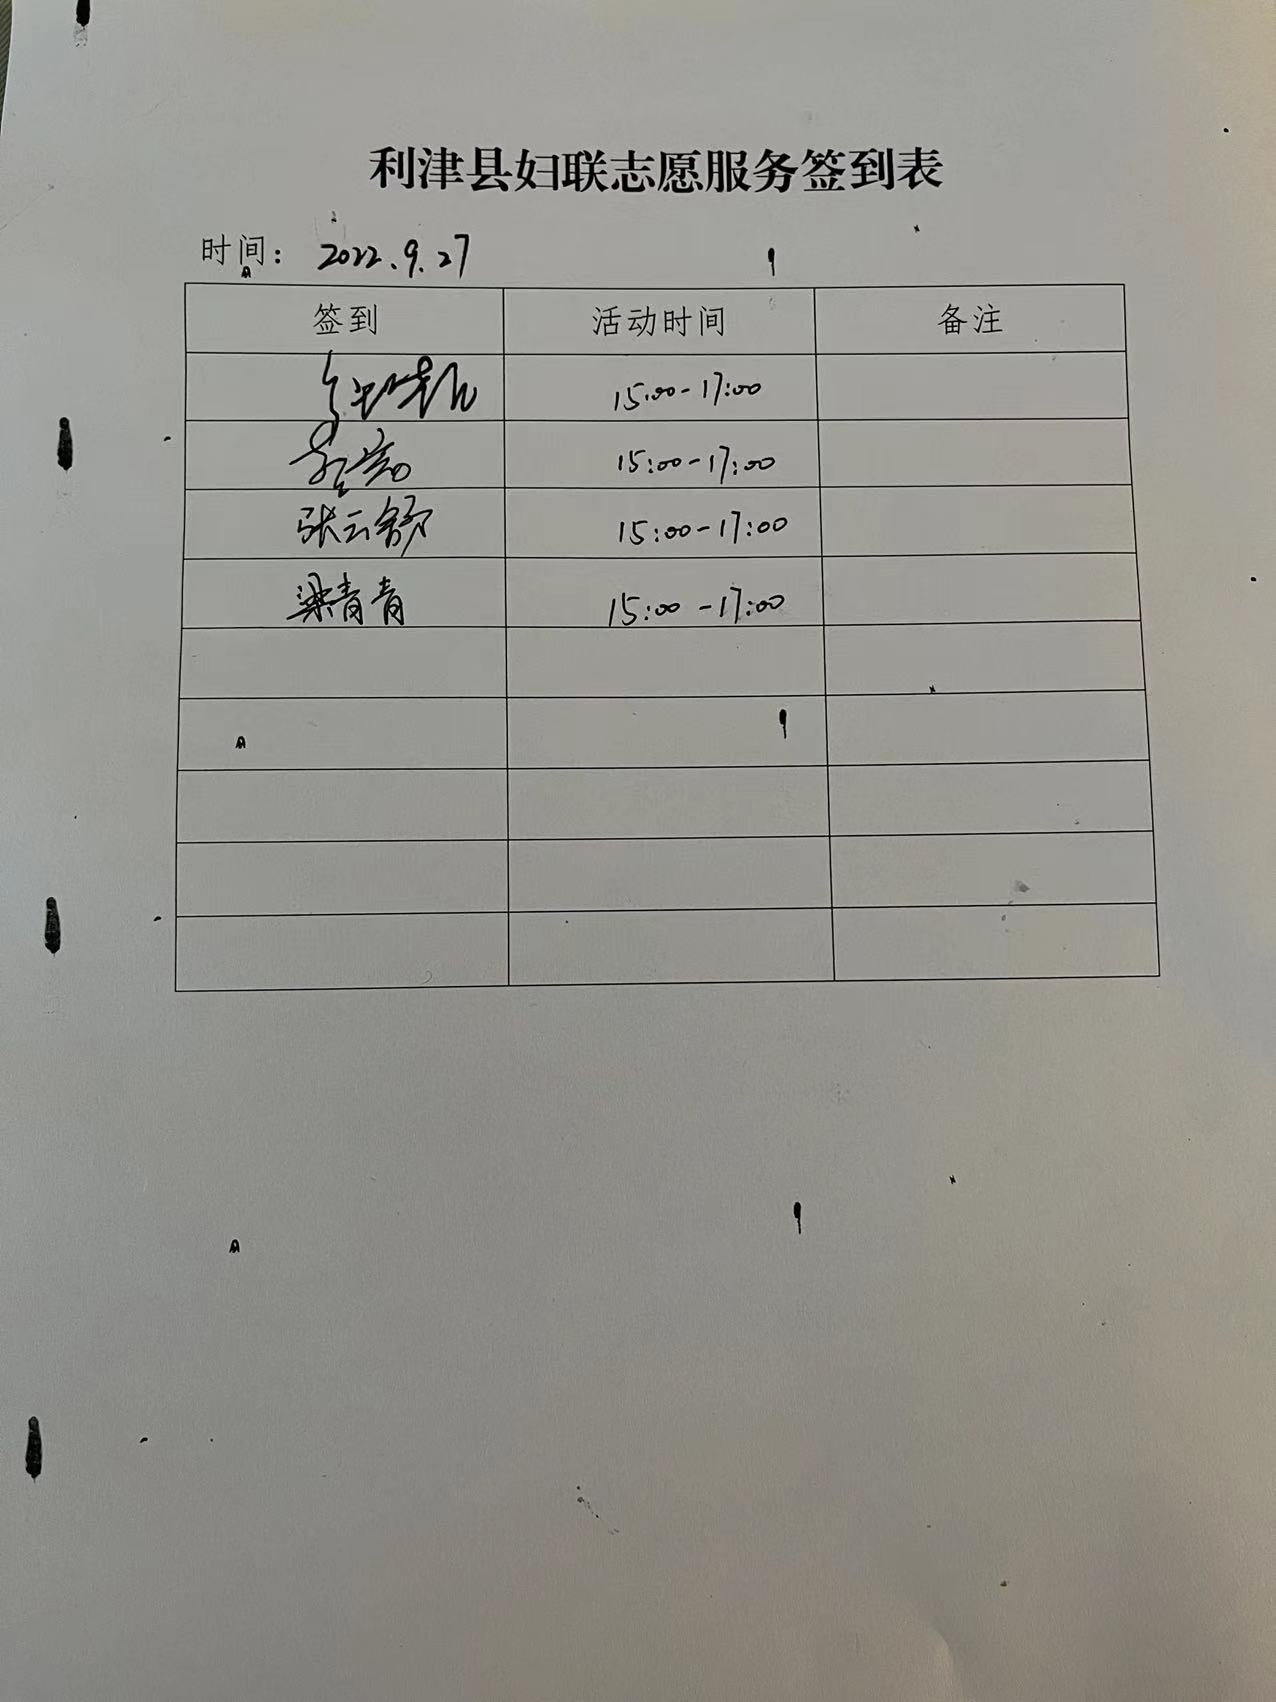 利津县妇联志愿服务签到表
时间: 2022.9.27
签到 活动时间 备注
15:00-17:00
15:00-17:00
张云舒 15:00-17:00
梁青青 15:00-17:00